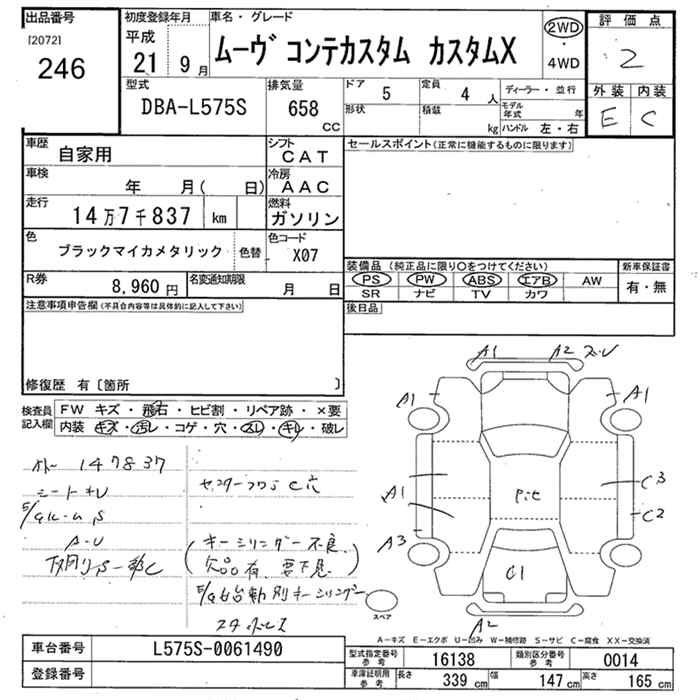 出品番号
[2072]
246
初度登録年月
平成
21 9 月
車名・グレード
ムーヴ コンテカスタム カスタムX
2WD
・
4WD
評価点
2
外装 内装
E C
型式
DBA-L575S
排気量
658
CC
ドア 5
定員 4 人
形状
積載 kg
ディーラー・並行
モデル年式 年
ハンドル 左・右
車歴
自家用
シフト
CAT
セールスポイント(正常に機能するものに限ります)
車検
年 月( 日)
冷房
AAC
走行
14万7千837 km
燃料
ガソリン
色
ブラックマイカメタリック
色替
色コード
X07
R券
8,960 円
名変通知期限
月 日
装備品 (純正品に限り○をつけてください)
PS PW ABS エアB AW
SR ナビ TV カワ
新車保証書
有・無
注意事項申告欄(不具合内容等は具体的に記入して下さい)
後日品
修復歴 有〔箇所 〕
検査員
記入欄
FW キズ・飛石・ヒビ割・リペア跡・×要
内装 キズ・汚レ・コゲ・穴・スレ・キレ・破レ
147837
A-U
キーシリンダー不良
欠品有 要下見
A1 A2
A1 A1
A1 C3
Pit
C2
A3
C1
A2
スペア
A-キズ E-エクボ U-凹み W-補修跡 S-サビ C-腐食 XX-交換済
車台番号
L575S-0061490
登録番号
型式指定番号
参考
16138
類別区分番号
参考
0014
車庫証明用
参考
長さ 339 cm
幅 147 cm
高さ 165 cm